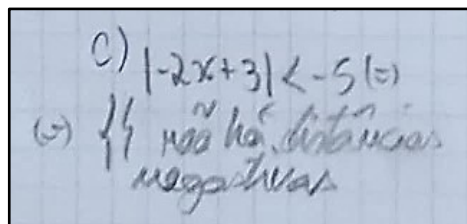 c) |-2x+3| < -5 (=)
(=) { } não há distâncias
negativas